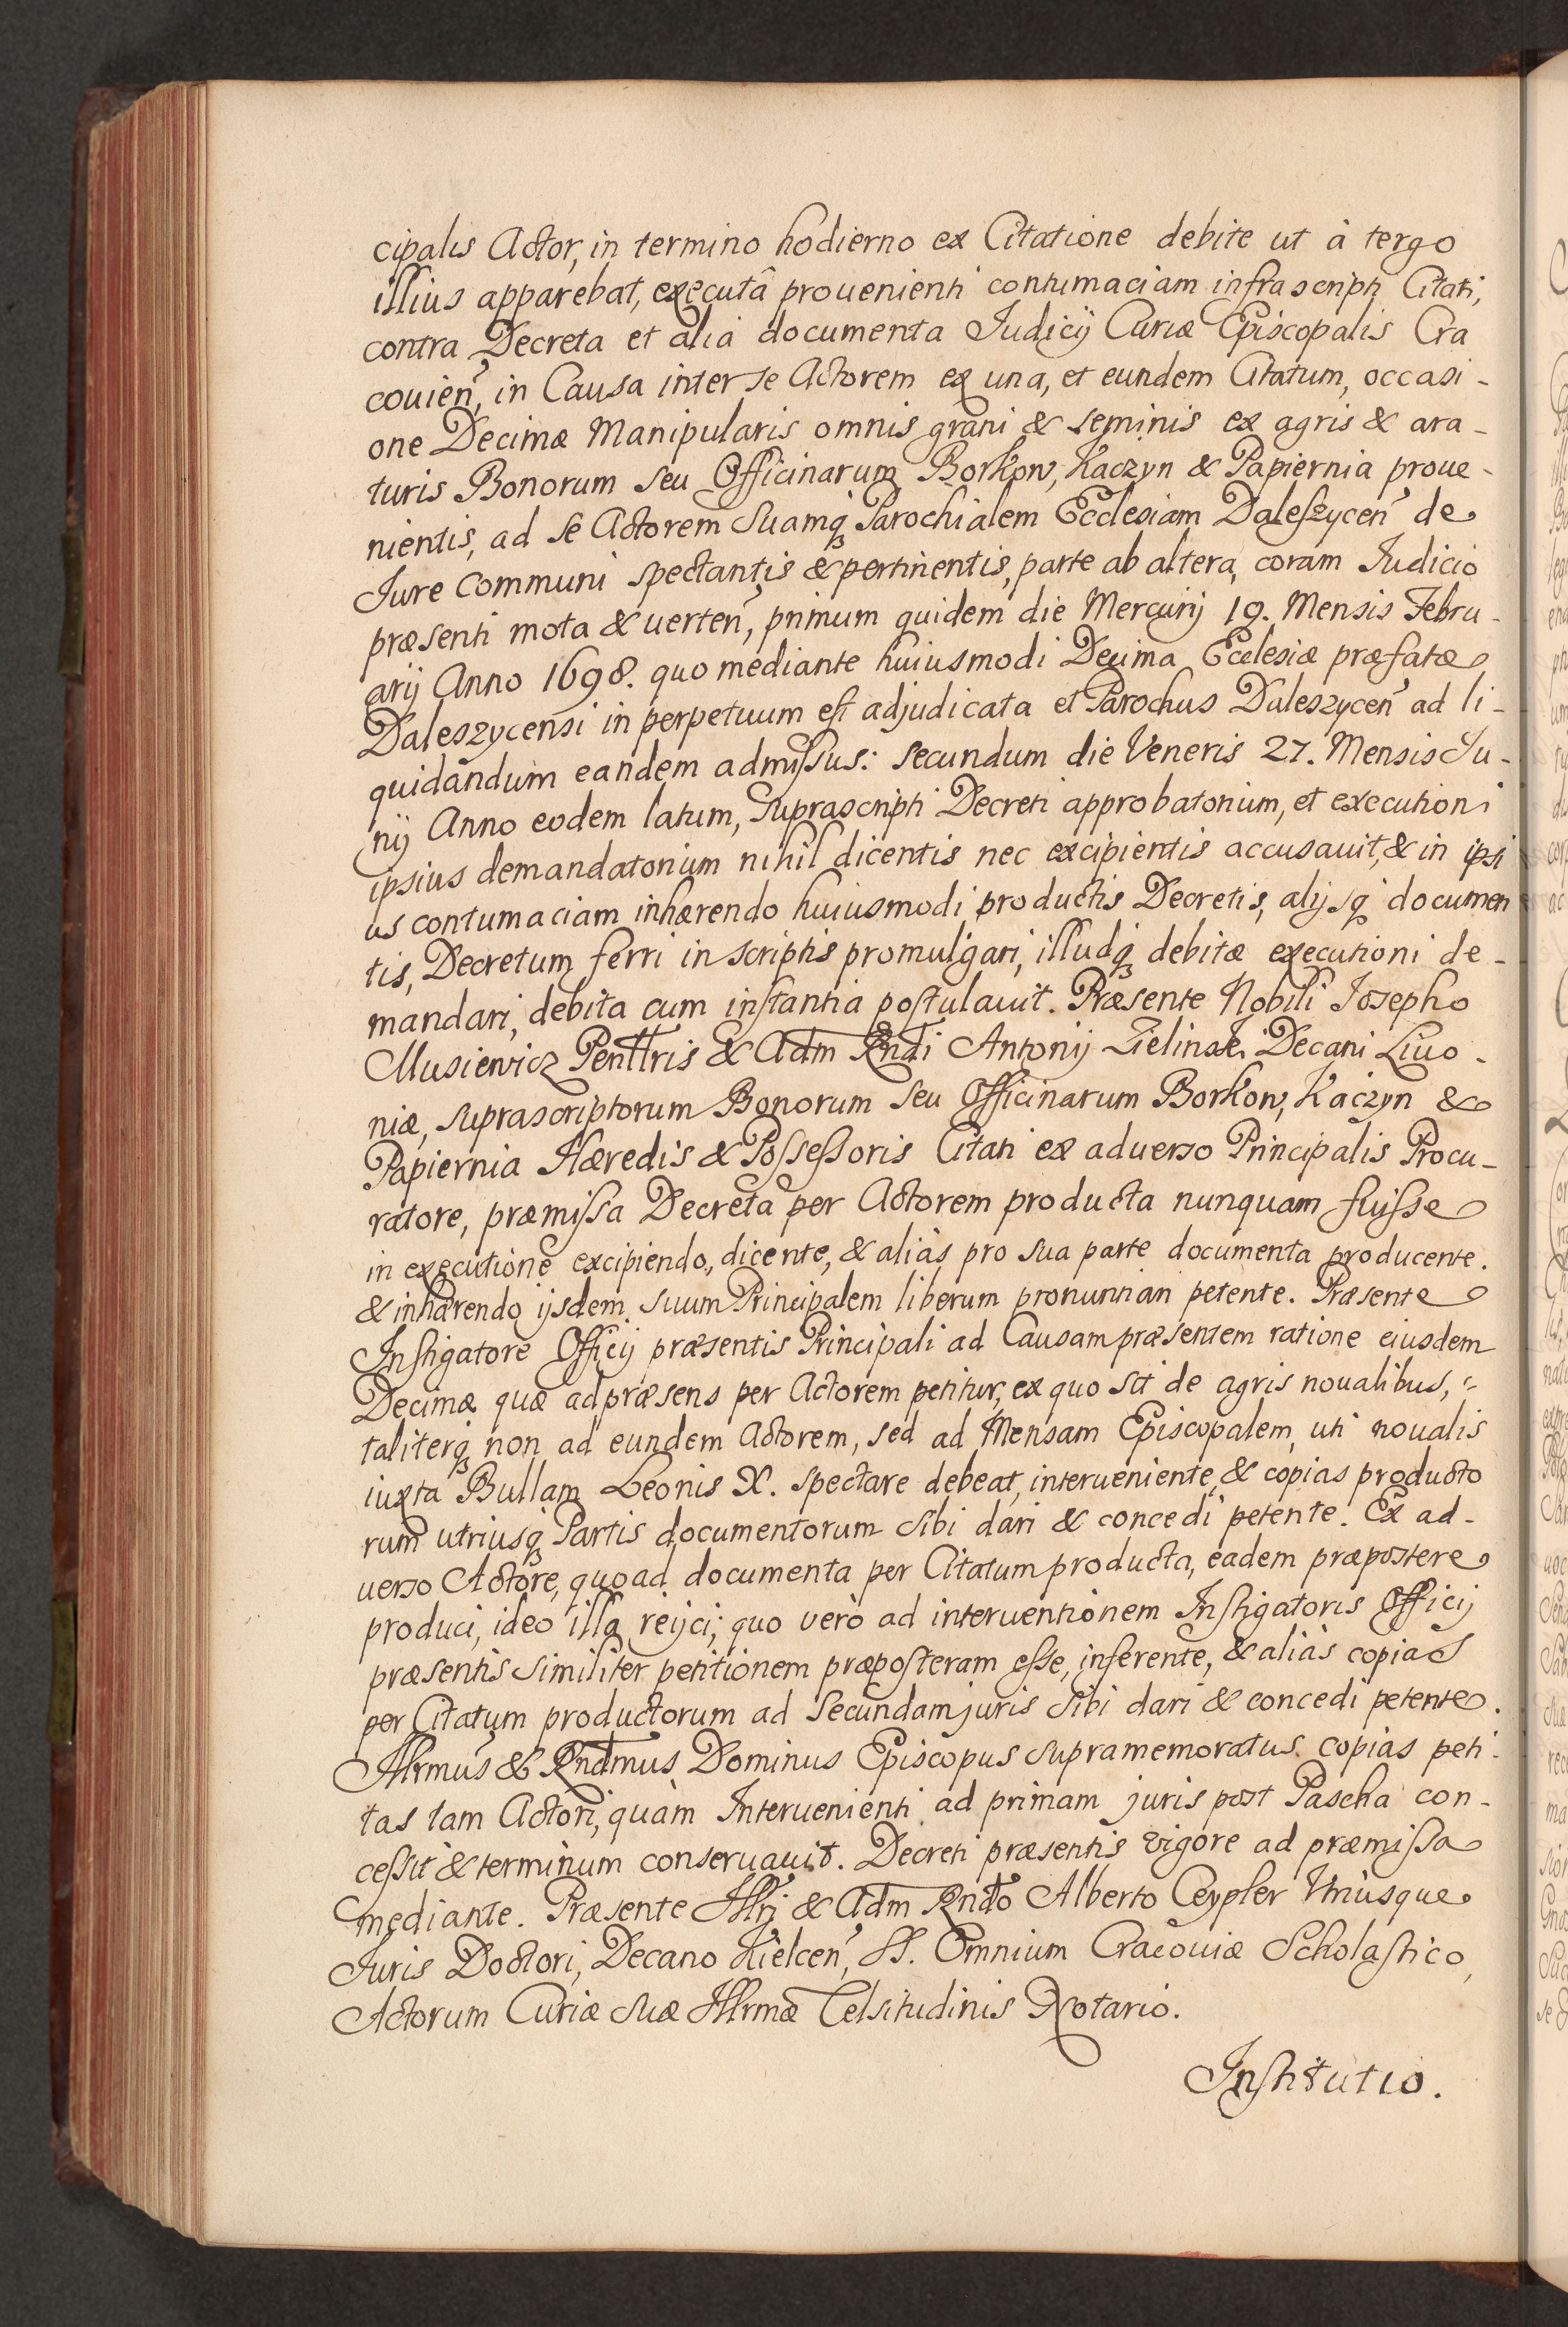 cipalis Actor, in termino hodierno ex Citatione debite ut à tergo
illius apparebat, executâ prouenienti contumaciam infrascripti Citati,
contra Decreta et alia documenta Judicij Curiæ Episcopalis Cra
couień, in Causa inter se Actorem ex una, et eundem Citatum, occasi-
one Decimæ Manipularis omnis grani & seminis ex agris & ara-
turis Bonorum seu Officinarum Borkow, Kaczyn & Papiernia proue-
nientis, ad se Actorem Suamq Parochialem Ecclesiam Daleszyceń de
Jure Communi spectantis & pertinentis, parte ab altera, coram Judicio
præsenti mota & uerteń, primum quidem die Mercurij 19. Mensis Febru-
arij Anno 1698. quo mediante huiusmodi Decima Ecclesiæ præfatæ
Daleszycensi in perpetuum est adjudicata et Parochus Daleszyceń ad li-
quidandum eandem admissus: secundum die Veneris 27. Mensis Ju-
nij Anno eodem latum, suprascripti Decreti approbatorium, et executioni
ipsius demandatorium nihil dicentis nec excipientis accusauit, & in ipsi
us contumaciam inhærendo huiusmodi productis Decretis, alijsq documen
tis, Decretum ferri in scriptis promulgari, illudq debitæ executioni de-
mandari, debita cum instantia postulauit. Præsente Nobili Josepho
Musiewicz Penttris & Adm Rndi Antonij Zielinski Decani Liuo-
niæ, suprascriptorum Bonorum seu Officinarum Borkow, Kaczyn &
Papiernia Hæredis & Possessoris Citati ex aduerso Principalis Procu-
ratore, præmissa Decreta per Actorem producta nunquam fuisse
in executione excipiendo, dicente, & alias pro sua parte documenta producente.
& inhærendo ijsdem, suum Principalem liberum pronunnari petente. Præsente
Instigatore Officij præsentis Principali ad Causam præsentem ratione eiusdem
Decimæ quæ ad præsens per Actorem petitur, ex quo sit de agris noualibus,
taliterq non ad eundem Actorem, sed ad Mensam Episcopalem, uti noualis
iuxta Bullam Leonis X. spectare debeat, interueniente, & copias producto
rum utriusq Partis documentorum sibi dari & concedi petente. Ex ad-
uerso Actore, quoad documenta per Citatum producta, eadem præpostere
produci, ideo illa reijci; quo verò ad interuentionem Instigatoris Officij
præsentis similiter petitionem præposteram esse, inferente, & alias copias
per Citatum productorum ad secundam juris sibi dari & concedi petente.
Illrmus & Rndmus Dominus Episcopus supramemoratus copias peti-
tas tam Actori, quàm Interuenienti ad primam juris post Pascha con-
cessit & terminum conseruauit. Decreti præsentis vigore ad præmissa
mediante. Præsente Illrj & Adm Rndo Alberto Ceypler Utriusque
Juris Doctori, Decano Kielceń, SS. Omnium Cracouiæ Scholastico,
Actorum Curiæ suæ Illrmæ Celsitudinis Notario.
Institutio.